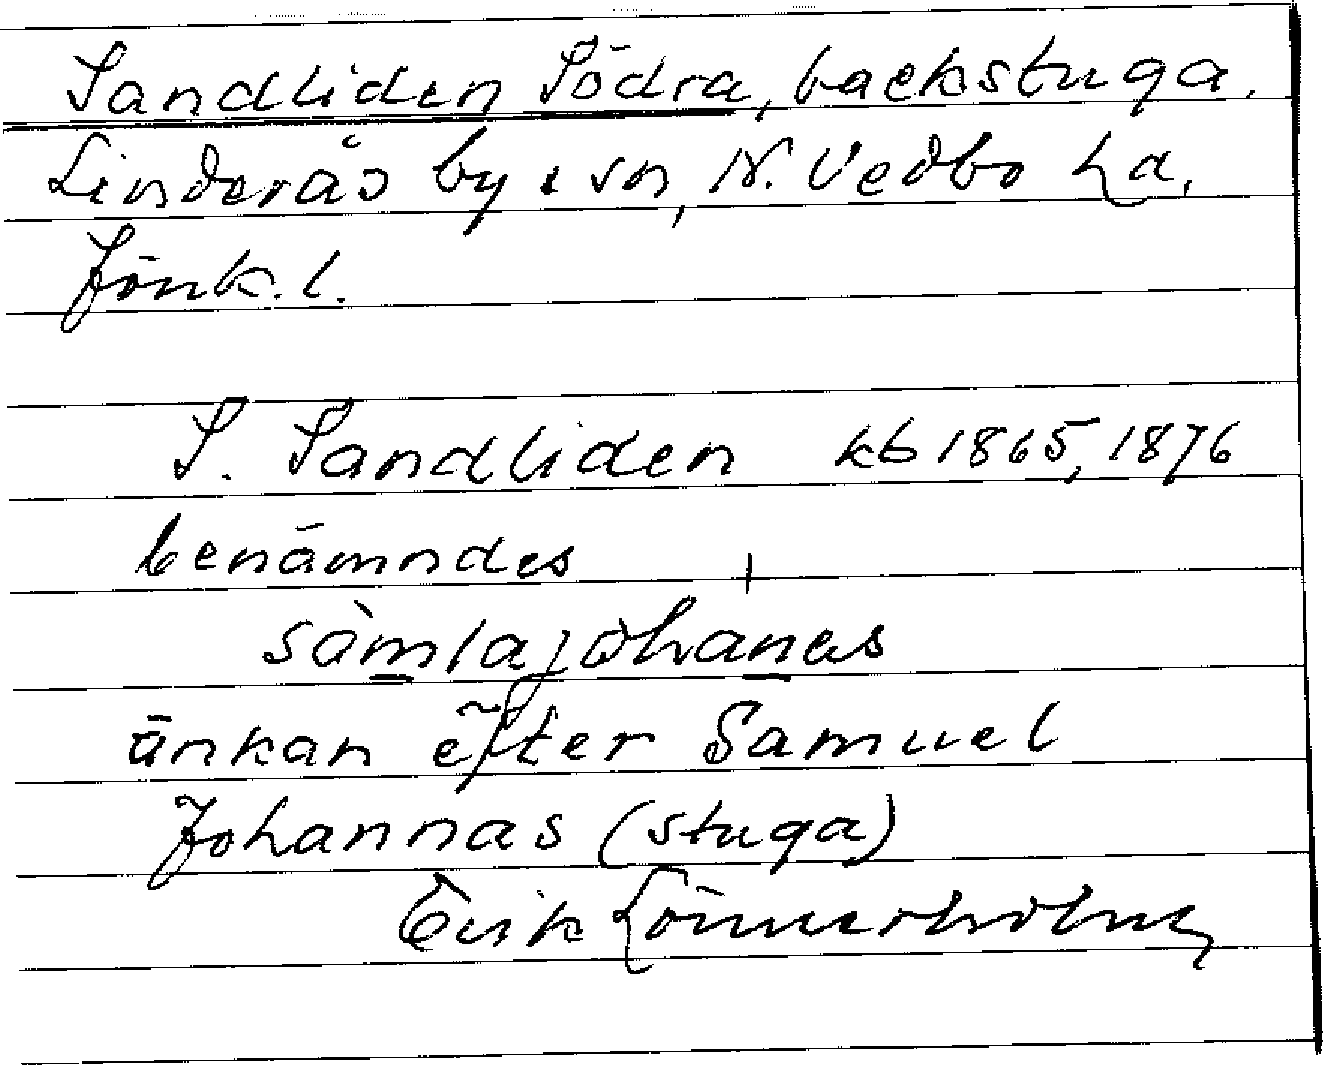 Sandliden Södra, backstuga.
Linderås by & sn, N. Vedbo hd,
Jönk. l.
S. Sandliden kb 1865, 1876
benämndes
sàmlajòhanas
änkan efter Samuel
Johannas (stuga)
Erik Lönnerholm